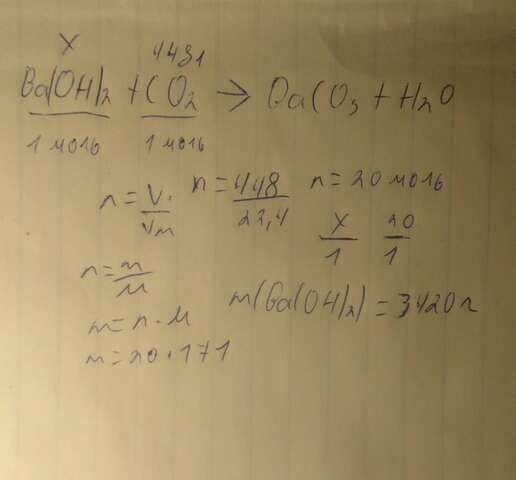 x 448л
Ba(OH)2 + CO2 → BaCO3 + H2O
1 моль 1 моль
n = V / Vm n = 448 / 22,4 n = 20 моль
x / 1 20 / 1
n = m / M
m = n · M m(Ba(OH)2) = 3420г
m = 20 · 171